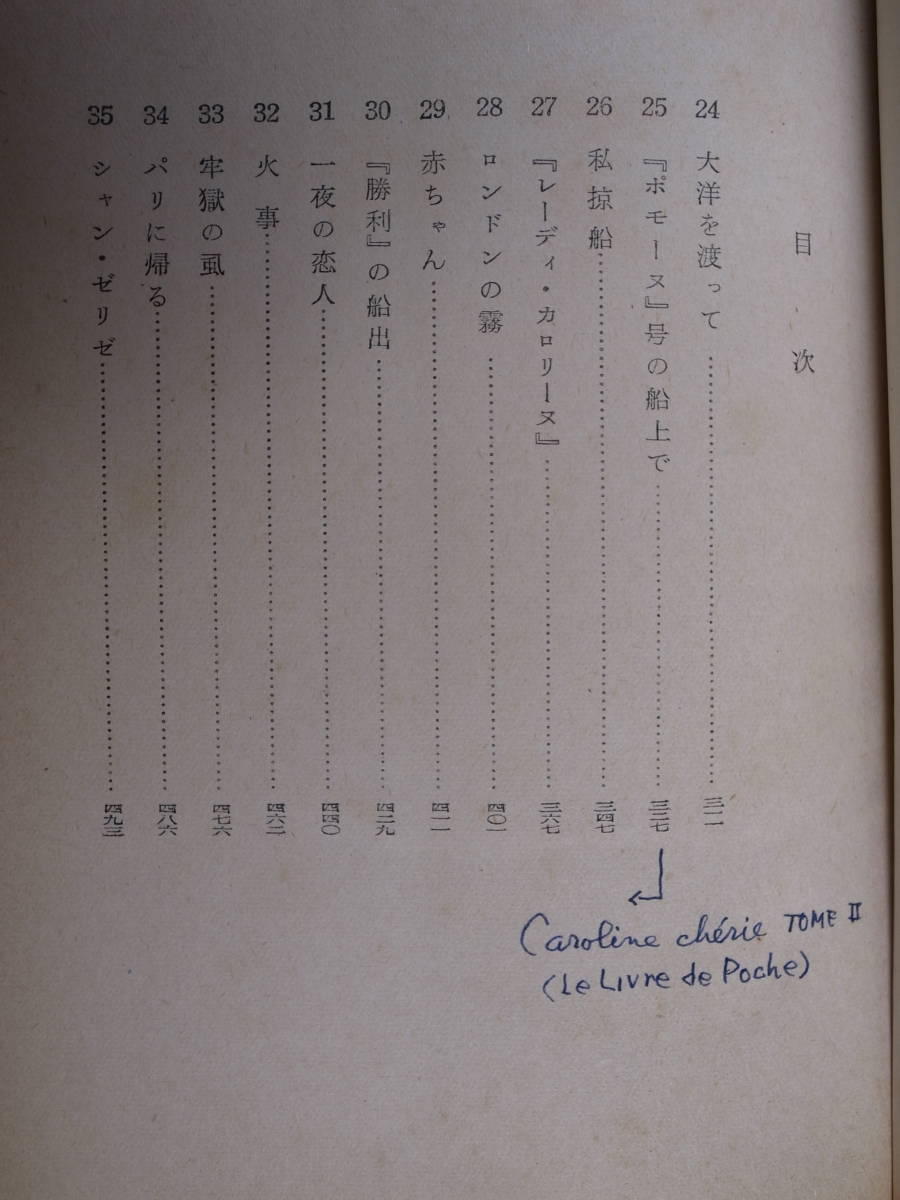 目次
24 大洋を渡って……三一一
25 『ポモーヌ』号の船上で……三二七
26 私掠船……三四七
27 『レーディ・カロリーヌ』……三六七
28 ロンドンの霧……四〇一
29 赤ちゃん……四一一
30 『勝利』の船出……四二九
31 一夜の恋人……四四〇
32 火事……四六二
33 牢獄の虱……四七六
34 パリに帰る……四八六
35 シャン・ゼリゼ……四九三
Caroline chérie TOME II
(Le Livre de Poche)